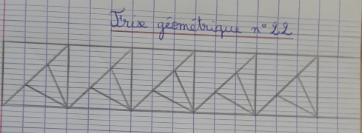 Frise géométrique n°22